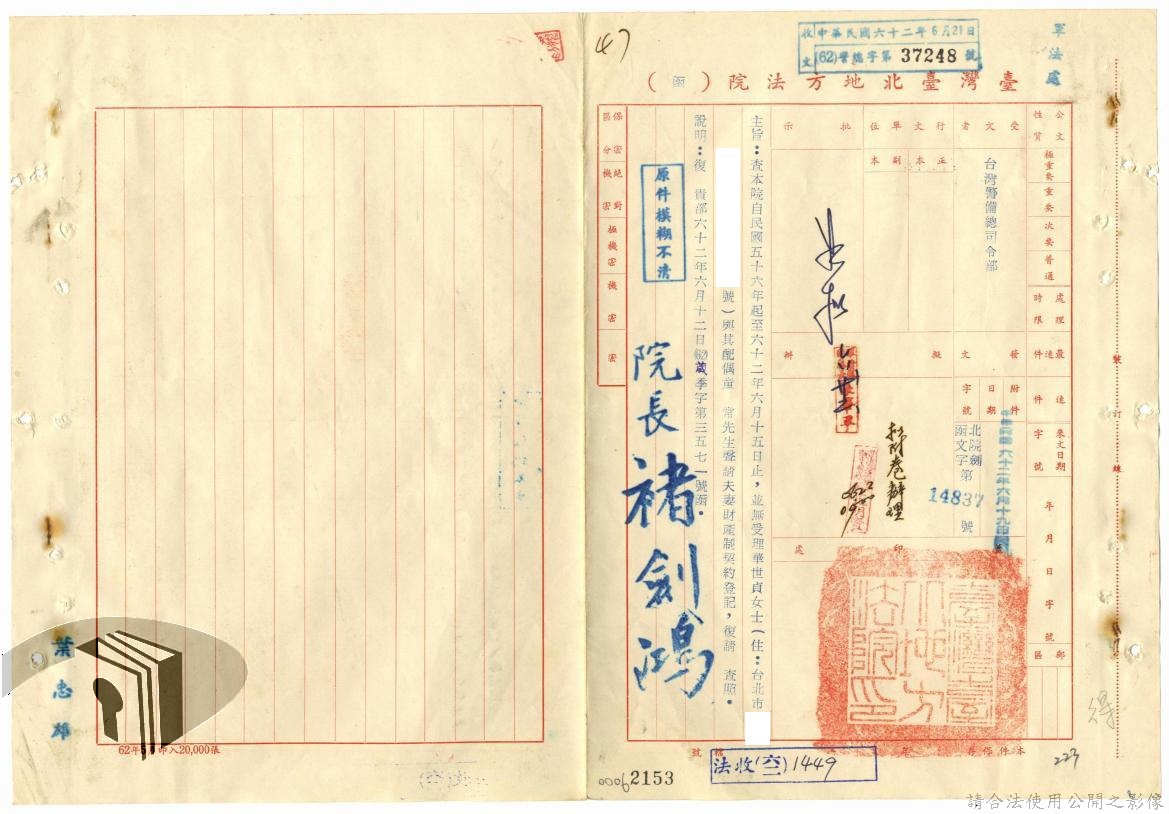 軍法處
收文 中華民國六十二年6月21日
(62)警總字第 37248 號
47
臺灣臺北地方法院(函)
公文性質 極重要 重要 次要 普通
處理時限 最速件 速件
來文日期 字號 年 月 日 字 號
郵區
受文者 台灣警備總司令部
行文單位 正本 副本
批示
發文 附件 日期 字號
中華民國六十二年六月十九日
北院劍函文字第 14837 號
擬辦
擬附卷辦理
印處
臺灣臺北地方法院印
主旨:查本院自民國五十六年起至六十二年六月十五日止,並無受理華世貞女士(住:台北市
號)與其配偶童 常先生聲請夫妻財產制契約登記,復請 查照。
說明:復 貴部六十二年六月十二日(62)崴季字第三五七一號函。
原件模糊不清
院長 褚劍鴻
保密區分 絕對機密 極機密 機密 密
本件停存
檔號
法收(六二)1449
223
00062153
葉忠雄
62年5月印入20,000張
裝訂線
請合法使用公開之影像